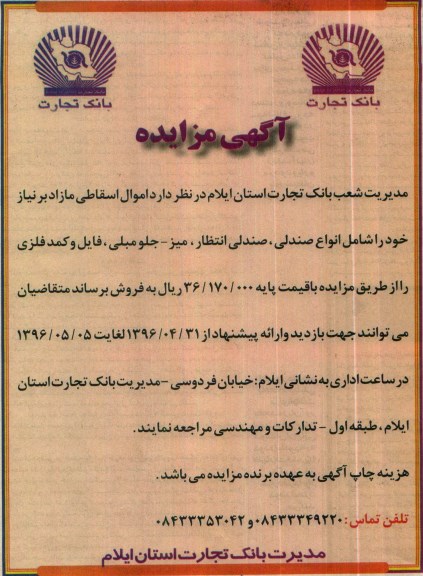 بانک تجارت
بانک تجارت
آگهی مزایده
مدیریت شعب بانک تجارت استان ایلام در نظر دارد اموال اسقاطی مازاد بر نیاز
خود را شامل انواع صندلی ، صندلی انتظار ، میز - جلو مبلی ، فایل و کمد فلزی
را از طریق مزایده با قیمت پایه ۳۶/۱۷۰/۰۰۰ ریال به فروش برساند متقاضیان
می توانند جهت بازدید و ارائه پیشنهاد از ۱۳۹۶/۰۴/۳۱ لغایت ۱۳۹۶/۰۵/۰۵
در ساعت اداری به نشانی ایلام : خیابان فردوسی - مدیریت بانک تجارت استان
ایلام ، طبقه اول - تدارکات و مهندسی مراجعه نمایند .
هزینه چاپ آگهی به عهده برنده مزایده می باشد .
تلفن تماس : ۰۸۴۳۳۳۴۹۲۲۰ و ۰۸۴۳۳۳۵۳۰۴۲
مدیرت بانک تجارت استان ایلام